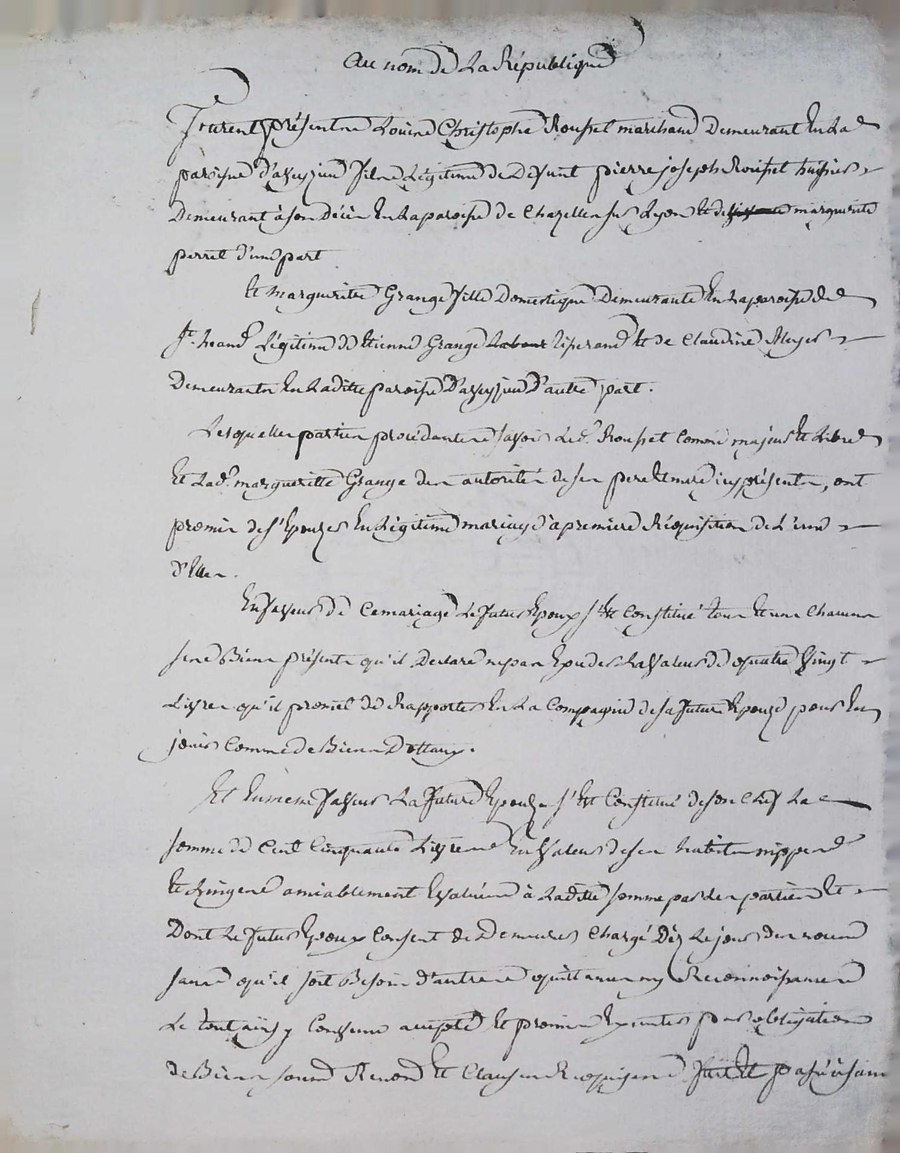 Au nom de La République
Furent présents Louis Christophe Rousset marchand Demeurant En La
paroisse d'aveyzieu fils Légitime de Défunt pierre joseph Rousset huissier
Demeurant à son décès En La paroisse de Chazelles sur Lyon Et de marguerite
perret d'une part
Et Margueritte Grange fille Domestique Demeurante En La paroisse de
St. Légitime d'Etienne Grange Et de Claudine
Demeurants En Laditte paroisse D'aveyzieu D'autre part.
Lesquelles parties procédantes savoir Led. Rousset Comme majeur Et Libre
Et Lad. margueritte Grange des autorités de ses pere Et mere icy présents, ont
promis de s'Epouser En Légitime mariage à première Réquisition de L'un
d'Eux.
En faveur de Ce mariage Le futur Epoux s'Est Constitué tous Et uns Chacuns
ses Biens présents qu'il Déclare n'exceder La valeur de quatre vingt
Livres qu'il promet de Rapporter En La Compagnie de sa future Epouze pour En
jouir Comme de Biens Dottaux.
Et En meme faveur La future Epouze s'Est Constitué de son Chef La
somme de Cent Cinquante Livres En valeur de ses habits nippes
Et Linges amiablement Evalués à Laditte somme par Les parties Et
Dont Le futur Epoux Consent de Demeurer Chargé Dèz Le jour des noces
sans qu'il soit Besoin d'autres quittances ny Reconnoissances
Le tout ainsy Convenu accepté Et promis Executer par obligation
de Biens soumis Renon Et Clauses Requises fait Et passé à